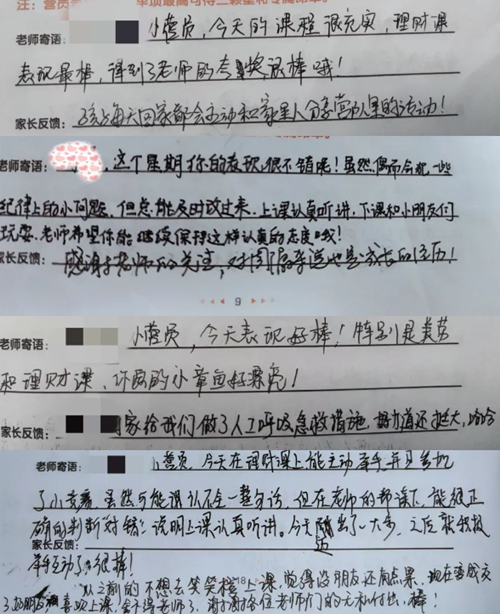 注：营员
老师寄语：小营员，今天的课程很充实，理财课
表现最棒，得到了老师的夸奖很棒哦！
家长反馈：孩子每天回家都会主动和家里人分享营队里的活动！
老师寄语：，这个星期你的表现很不错呢！虽然偶而会犯一些
纪律上的小问题，但总能及时改过来。上课认真听讲，下课和小朋友们
玩耍。老师希望你能继续保持这样认真的态度哦！
家长反馈：感谢老师的关注，对于来说也是成长的经历！
9
老师寄语：小营员，今天表现好棒！特别是美劳
和理财课，你画的小章鱼好漂亮！
家长反馈：家给我们做了人工呼吸急救措施，力道还挺大，哈哈
老师寄语：小营员，今天在理财课上能主动举手并且参加
了小竞赛，虽然可能认不全一整句话，但在老师的帮读下，能很正
确的判断对错，说明上课认真听讲。今天迈出了一大步，之后就我
家长反馈：
18
从之前的不想去上课，觉得没朋友还有点累，现在变成交
了好朋友喜欢上课，舍不得老师了，谢谢各位老师们的付出，棒！